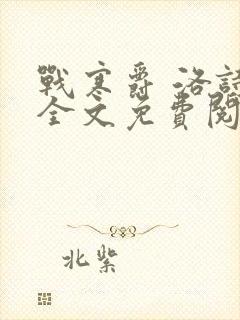 戰寒爵 洛
全文免費閱
北紫